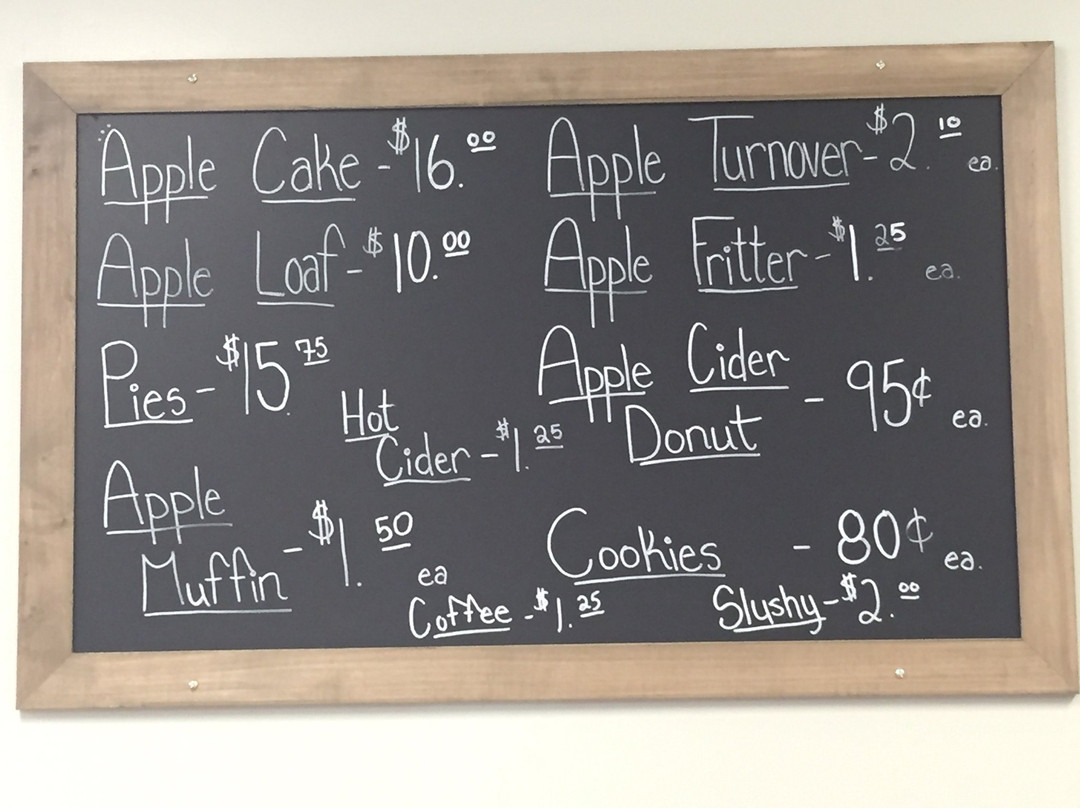 Apple Cake - $16.00
Apple Loaf - $10.00
Pies - $15.75
Hot
Cider - $1.25
Apple
Muffin - $1.50 ea
Coffee - $1.25
Apple Turnover - $2.10 ea.
Apple Fritter - $1.25 ea.
Apple Cider
Donut - 95¢ ea.
Cookies - 80¢ ea.
Slushy - $2.00